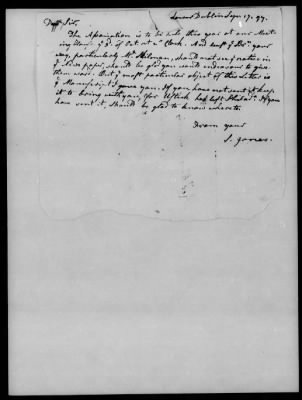 Lower Dublin Sepr. 17. 97.
Dr Sir,
The Association is to be held this year at our Meet-
ing House ye 3d of Oct. at 2 o'Clock. And lest ye Brn. your
way, particularly Mr. Stilman, should not see ye notice in
ye News paper, should be glad you would endeavour to give
them word. But ye most particular object of this Letter is
ye Manuscript I gave you. If you have not sent it keep
it to bring with you, for Ustick has left Philad. If you
have sent it should be glad to know where to.
From yours
S. Jones.